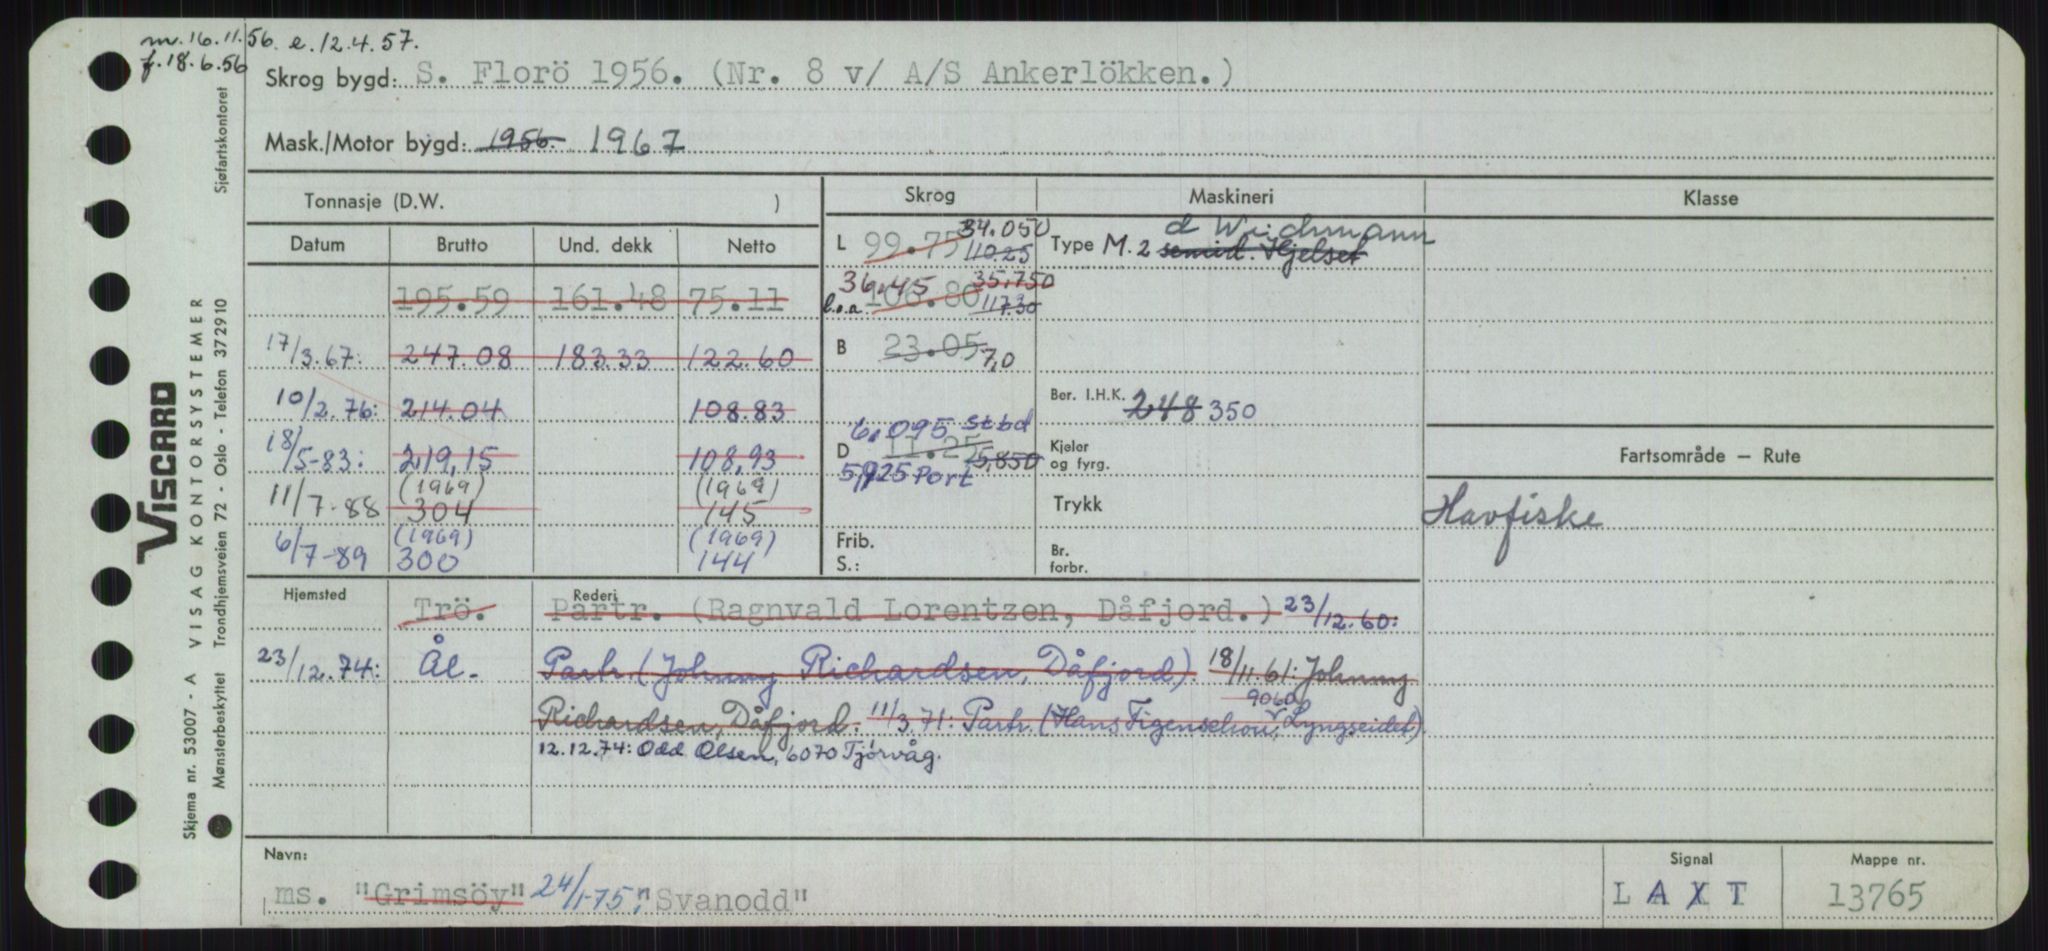 m. 16.11.56. e. 12.4.57.
f. 18.6.56
Skrog bygd: S. Florö 1956. (Nr. 8 v/ A/S Ankerlökken.)
Mask./Motor bygd: 1956. 1967
Tonnasje (D.W. ) Skrog Maskineri Klasse
Datum Brutto Und. dekk Netto
L 99.75 34.050 110.25
Type M. 2 semid. Hjelset d Wichmann
195.59 161.48 75.11
36.45 35.750
l.o.a. 106.80 117.30
17/3.67: 247.08 183.33 122.60
B 23.05 7,0
10/2.76: 214.04 108.83
Ber. I.H.K. 248 350
18/5-83: 219,15 108,93
6.095 Stbd
D 11.25 5,850
5,925 Port
Kjeler og fyrg.
Fartsområde – Rute
11/7-88 (1969) 304 (1969) 145
Trykk
Havfiske
6/7-89 (1969) 300 (1969) 144
Frib. S.:
Br. forbr.
Hjemsted Rederi
Trö. Partr. (Ragnvald Lorentzen, Dåfjord.) 23/12.60:
23/12.74: Ål. Partr. (Johnny Richardsen, Dåfjord). 18/11.61: Johnny
Richardsen, Dåfjord. 11/3.71: Partr. (Hans Figenschou, 9060 Lyngseidet)
12.12.74: Odd Olsen, 6070 Tjørvåg.
Navn: Signal Mappe nr.
ms. "Grimsöy" 24/1-75: "Svanodd" LAXT 13765
VISCARD
VISAG KONTORSYSTEMER
Skjema nr. 53007 - A
Mønsterbeskyttet Trondhjemsveien 72 - Oslo - Telefon 372910 Sjøfartskontoret